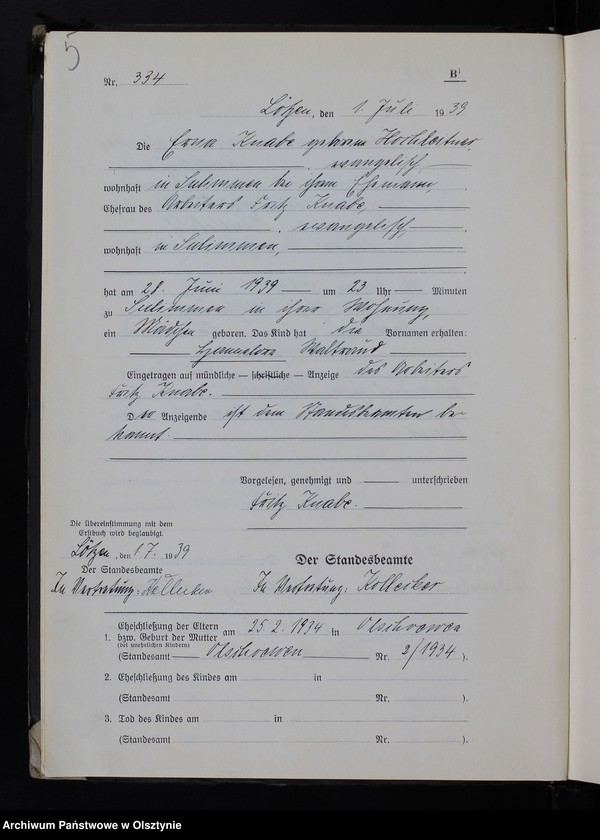 5
Nr. 334 B¹
Lötzen, den 1. Juli 1939
Die Erna Knabe geborene
, evangelisch
wohnhaft in Sulimmen bei ihrem Ehemann,
Ehefrau des Arbeiters Fritz Knabe,
, evangelisch,
wohnhaft in Sulimmen,
hat am 28. Juni 1939 um 23 Uhr Minuten
zu Sulimmen in ihrer Wohnung,
ein Mädchen geboren. Das Kind hat die Vornamen erhalten:
Hannelore Waltraud
Eingetragen auf mündliche — schriftliche — Anzeige des Arbeiters
Fritz Knabe.
Der Anzeigende ist dem Standesbeamten be-
kannt.
Vorgelesen, genehmigt und unterschrieben
Fritz Knabe.
Die Übereinstimmung mit dem
Erstbuch wird beglaubigt.
Lötzen, den 1.7. 1939
Der Standesbeamte
In Vertretung:
Der Standesbeamte
In Vertretung:
1. Eheschließung der Eltern
bzw. Geburt der Mutter am 25.2.1934 in
(bei unehelichen Kindern)
(Standesamt Olschöwen Nr. 2/1934 ).
2. Eheschließung des Kindes am in
(Standesamt Nr. ).
3. Tod des Kindes am in
(Standesamt Nr. ).
Archiwum Państwowe w Olsztynie